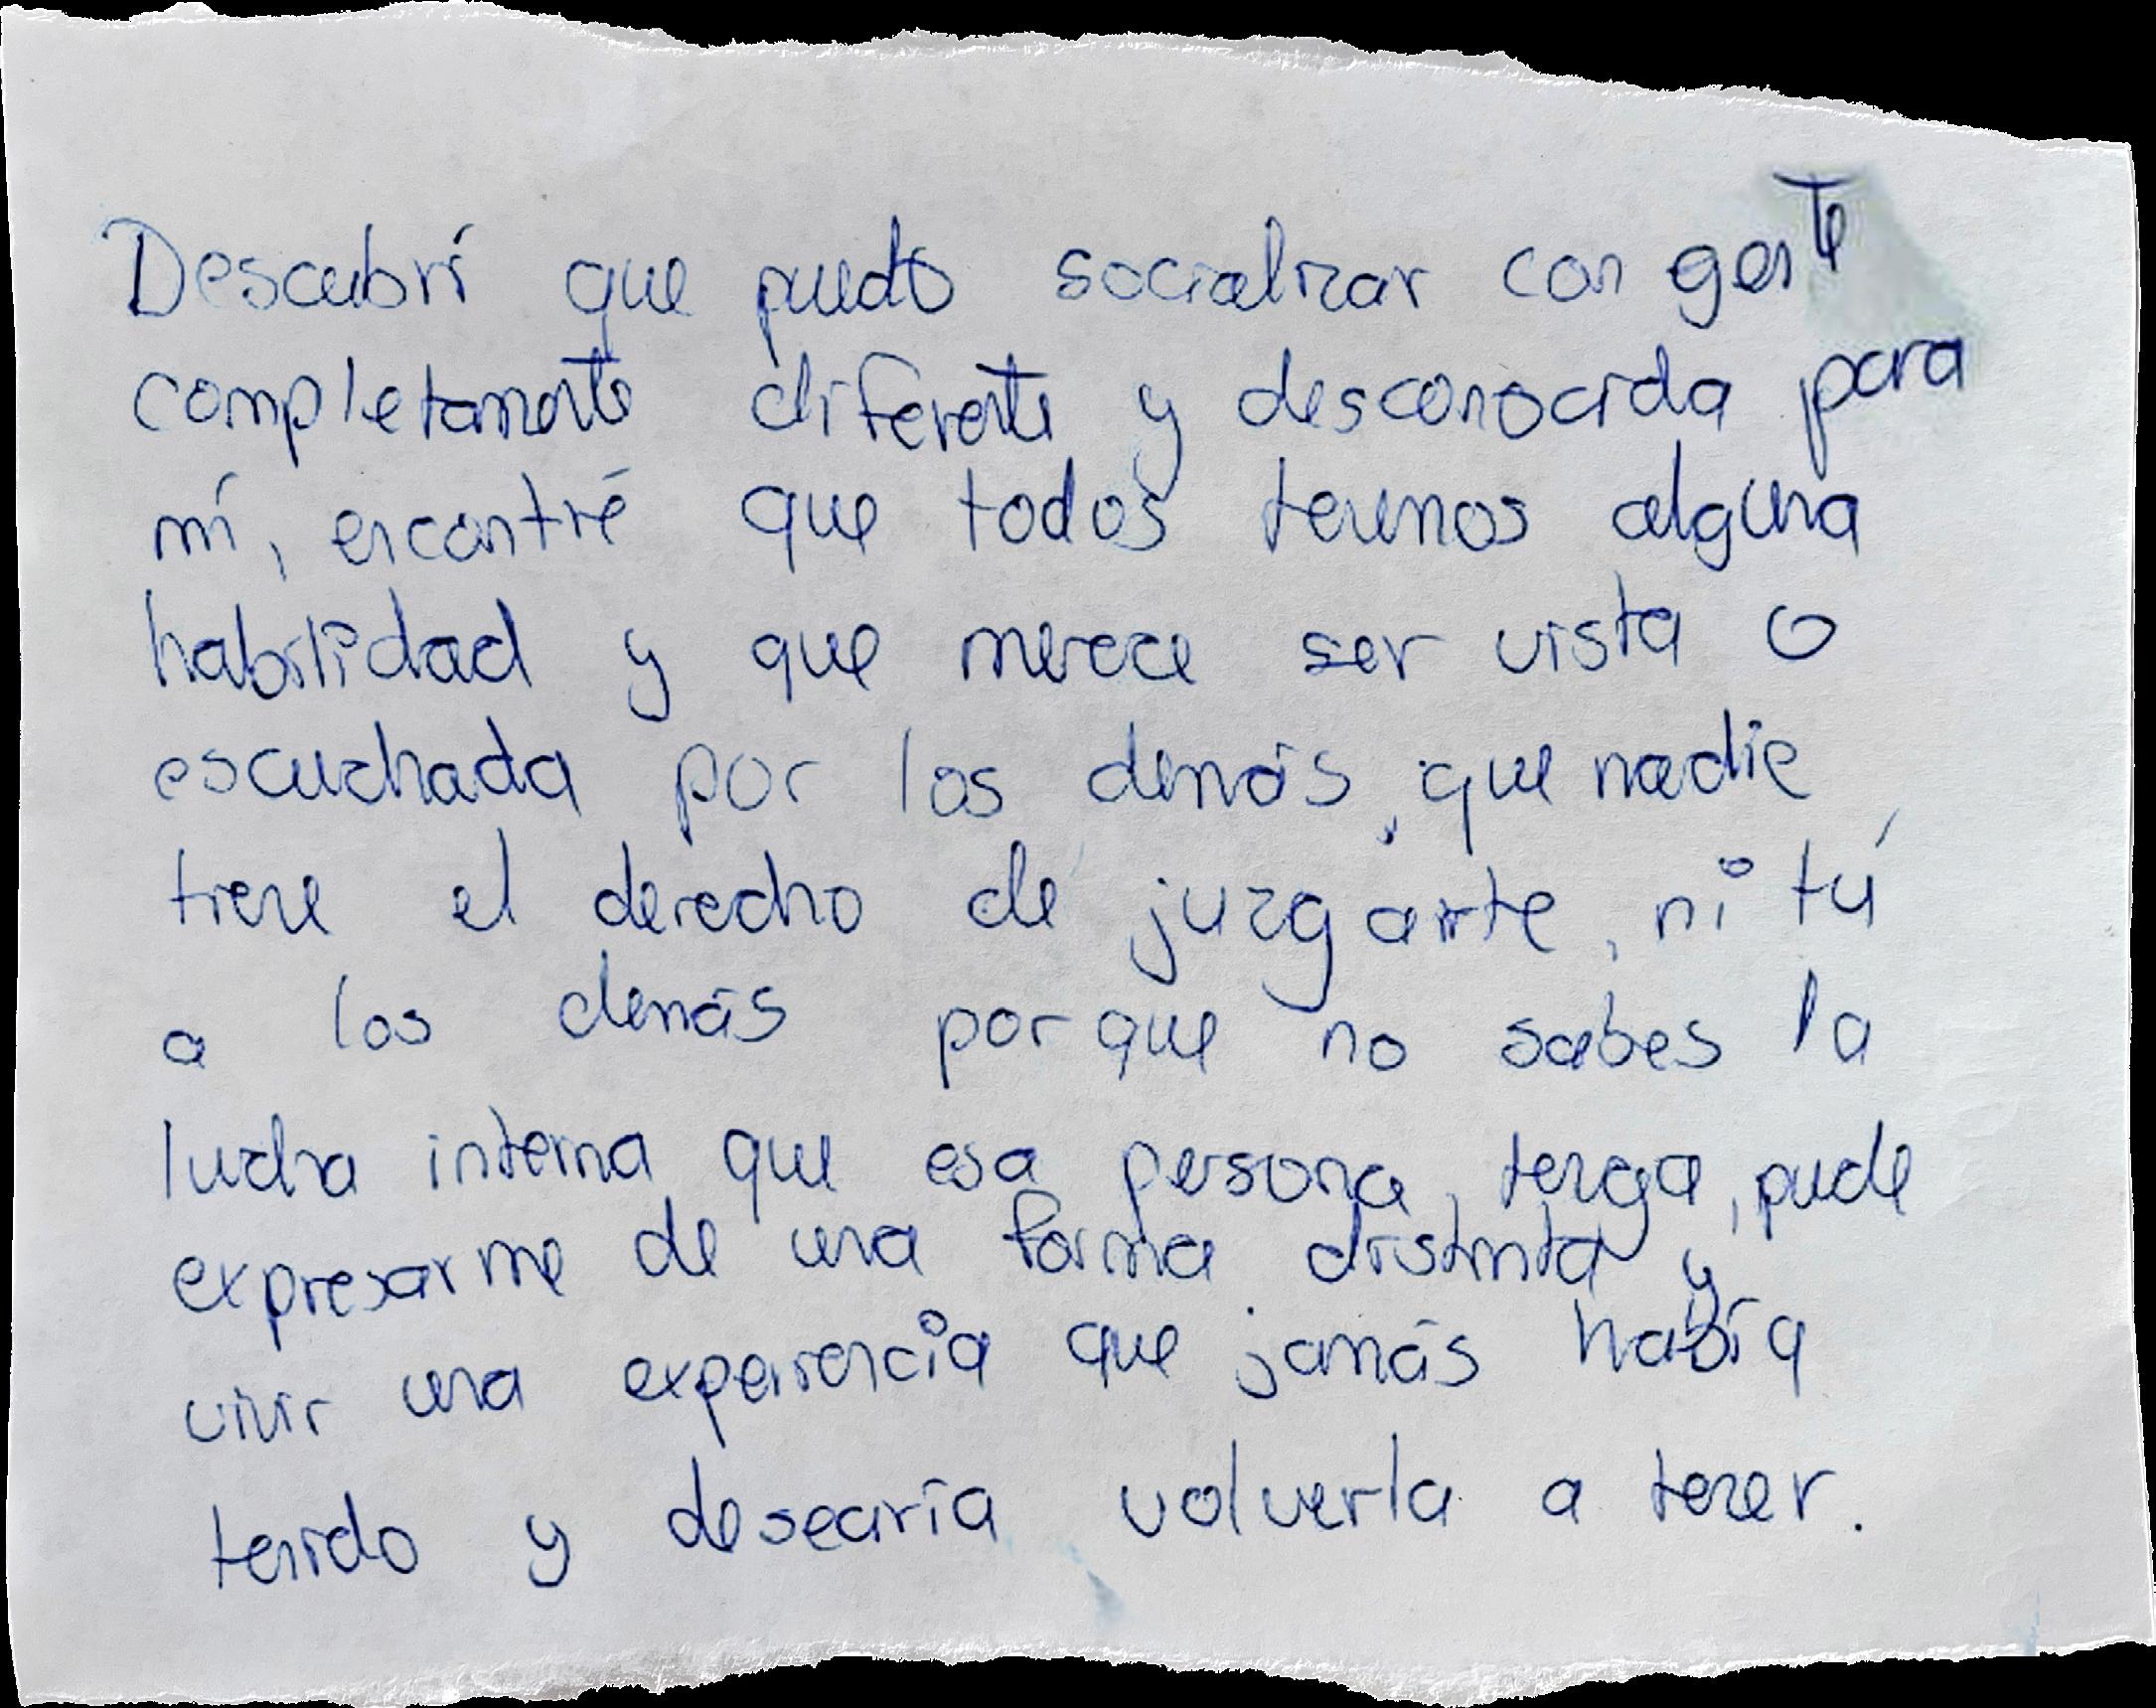 Descubrí que puedo socializar con gente
completamente diferente y desconocida para
mí, encontré que todos tenemos alguna
habilidad y que merece ser vista o
escuchada por los demás, que nadie
tiene el derecho de juzgarte, ni tú
a los demás porque no sabes la
lucha interna que esa persona tenga, pude
expresarme de una forma distinta y
vivir una experiencia que jamás había
tenido y desearía volverla a tener.